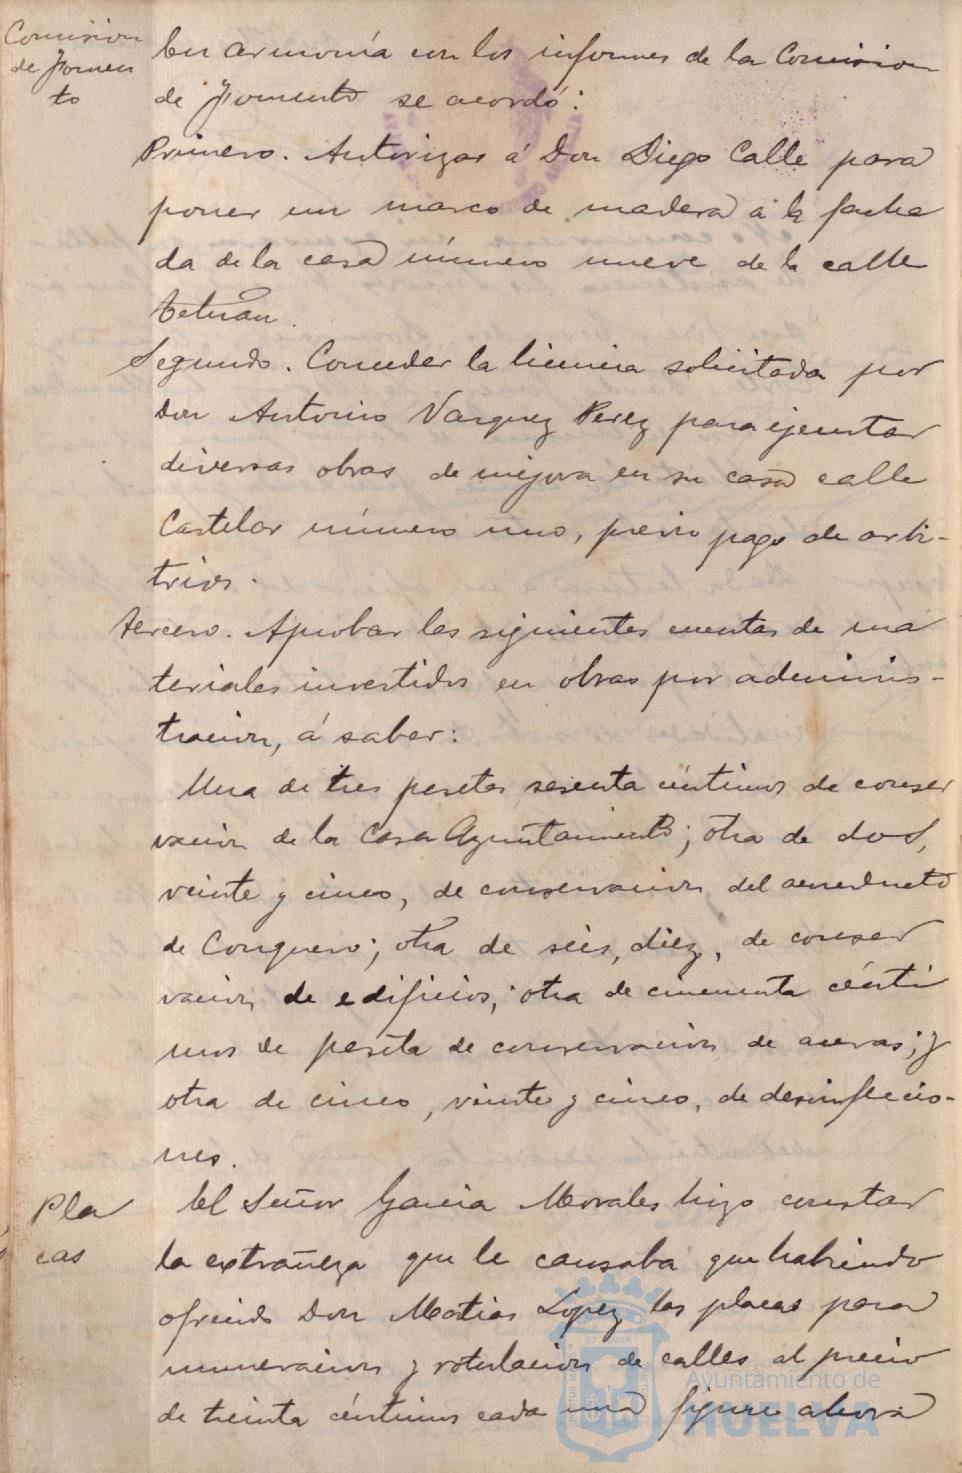 Comision
de Fomen
to
En armonía con los informes de la Comision
de Fomento se acordó:
Primero. Autorizar á Don Diego Calle para
poner un marco de madera á la facha
da de la casa número nueve de la calle
Tetuan.
Segundo. Conceder la licencia solicitada por
Don Antonio Vazquez Perez para ejecutar
diversas obras de mejora en su casa calle
Castelar número uno, previo pago de arbi-
trios.
Tercero. Aprobar las siguientes cuentas de ma
teriales invertidos en obras por adminis-
tracion, á saber:
Una de tres pesetas sesenta céntimos de conser
vacion de la Casa Ayuntamiento; otra de dos,
veinte y cinco, de conservacion del acueducto
de Conquero; otra de seis, diez, de conser
vacion de edificios; otra de cincuenta cénti
mos de peseta de conservacion de aceras; y
otra de cinco, veinte y cinco, de desinfeccio-
nes.
Pla
cas
El Señor Garcia Morales hizo constar
la extrañeza que le causaba que habiendo
ofrecido Don Matias Lopez las placas para
numeracion y rotulacion de calles al precio
de treinta céntimos cada una figure ahora
Ayuntamiento de
HUELVA